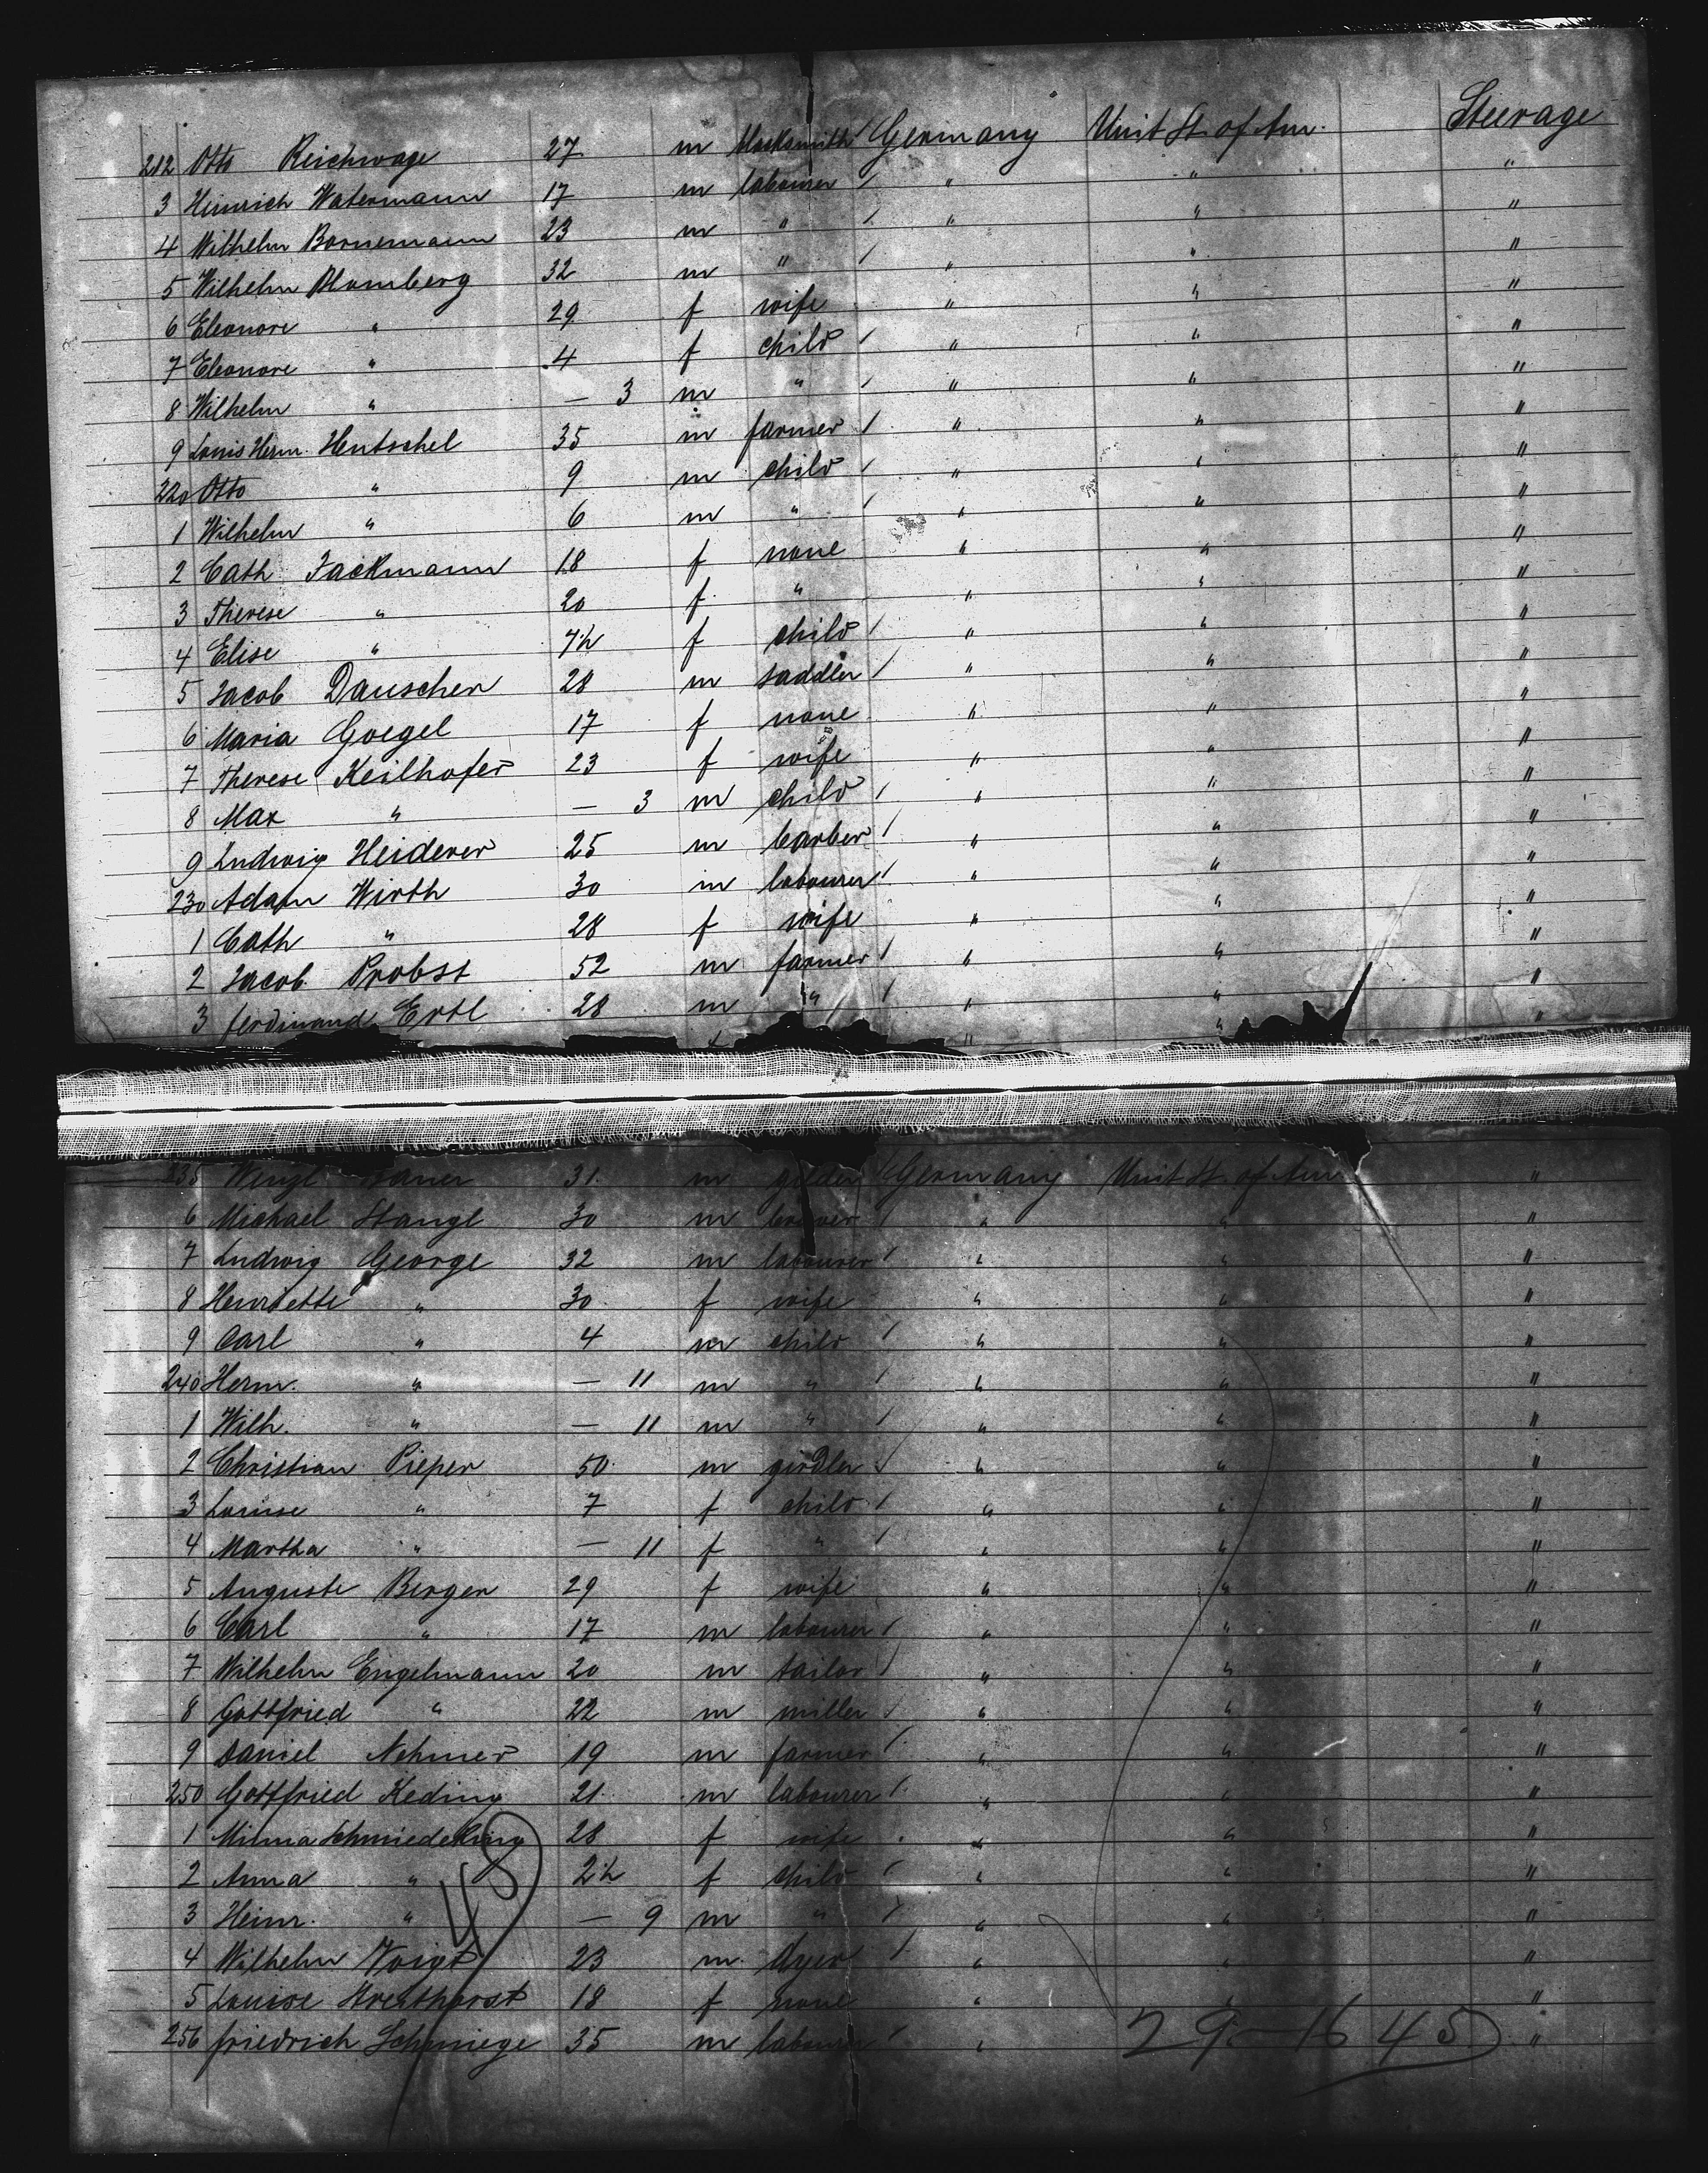 212 Otto Reichwage 27 m blacksmith / Germany Unit St. of Am. Steerage
3 Heinrich Watermann 17 m labourer / " " "
4 Wilhelm Bornemann 23 m " / " " "
5 Wilhelm Blomberg 32 m " / " " "
6 Eleonore " 29 f wife " " "
7 Eleonore " 4 f child / " " "
8 Wilhelm " — 3 m " / " " "
9 Louis Herm. Hentschel 35 m farmer / " " "
220 Otto " 9 m child / " " "
1 Wilhelm " 6 m " / " " "
2 Cath Jackmann 18 f none " " "
3 Therese " 20 f " " " "
4 Elise " f child / " " "
5 Jacob Dauscher 28 m saddler / " " "
6 Maria Goegel 17 f none " " "
7 Therese Keilhofer 23 f wife " " "
8 Max " — 3 m child / " " "
9 Ludwig Heiderer 25 m barber / " " "
230 Adam Wirth 30 m labourer / " " "
1 Cath " 28 f wife " " "
2 Jacob Probst 52 m farmer / " " "
3 Ferdinand Ertl 28 m " / " " "
235 Wenzl 31. m Germany Unit St. of Am. "
6 Michael Stangl 30 m brewer / " " "
7 Ludwig George 32 m labourer / " " "
8 Henriette " 30 f wife " " "
9 Carl " 4 m child / " " "
240 Herm. " — 11 m " / " " "
1 Wilh. " — 11 m " / " " "
2 Christian Pieper 50 m girdler / " " "
3 Louise " 7 f child / " " "
4 Martha " — 11 f " / " " "
5 Auguste Berger 29 f wife " " "
6 Carl " 17 m labourer / " " "
7 Wilhelm Engelmann 20 m tailor / " " "
8 Gottfried " 22 m miller / " " "
9 Daniel Nehmer 19 m farmer / " " "
250 Gottfried Keding 21. m labourer / " " "
1 Minna Schmiedeking 28 f wife " " "
2 Anna " f child / " " "
3 Heinr. " — 9 m " / " " "
4 Wilhelm Voigt 23 m dyer / " " "
5 Louise 18 f none " "
256 Friedrich Schmiege 35 m labourer / " "
48
29 — 16 45